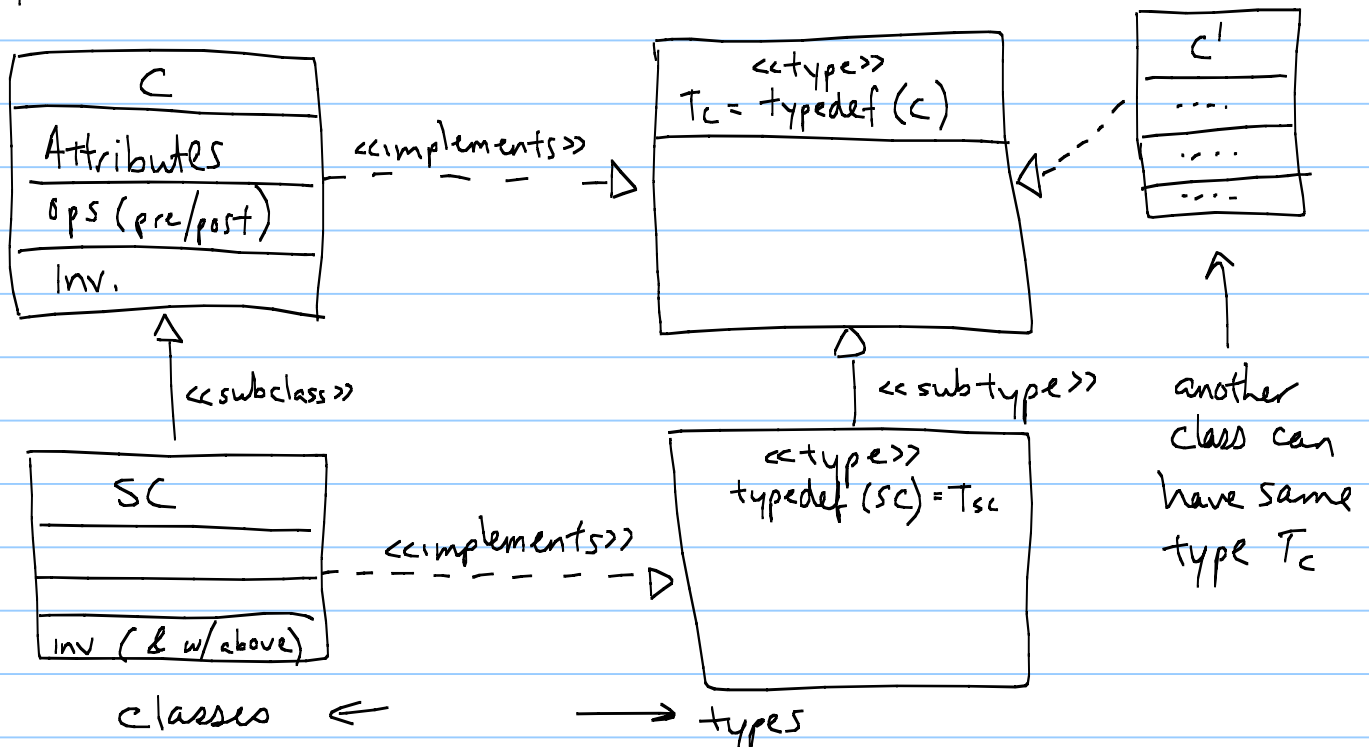 C
Attributes
ops (pre/post)
Inv.
<<implements>>
<<type>>
Tc = typedef (C)
C'
....
....
....
<<subclass>>
<<subtype>>
another
class can
have same
type Tc
SC
inv (& w/above)
<<implements>>
<<type>>
typedef (SC) = Tsc
classes
types